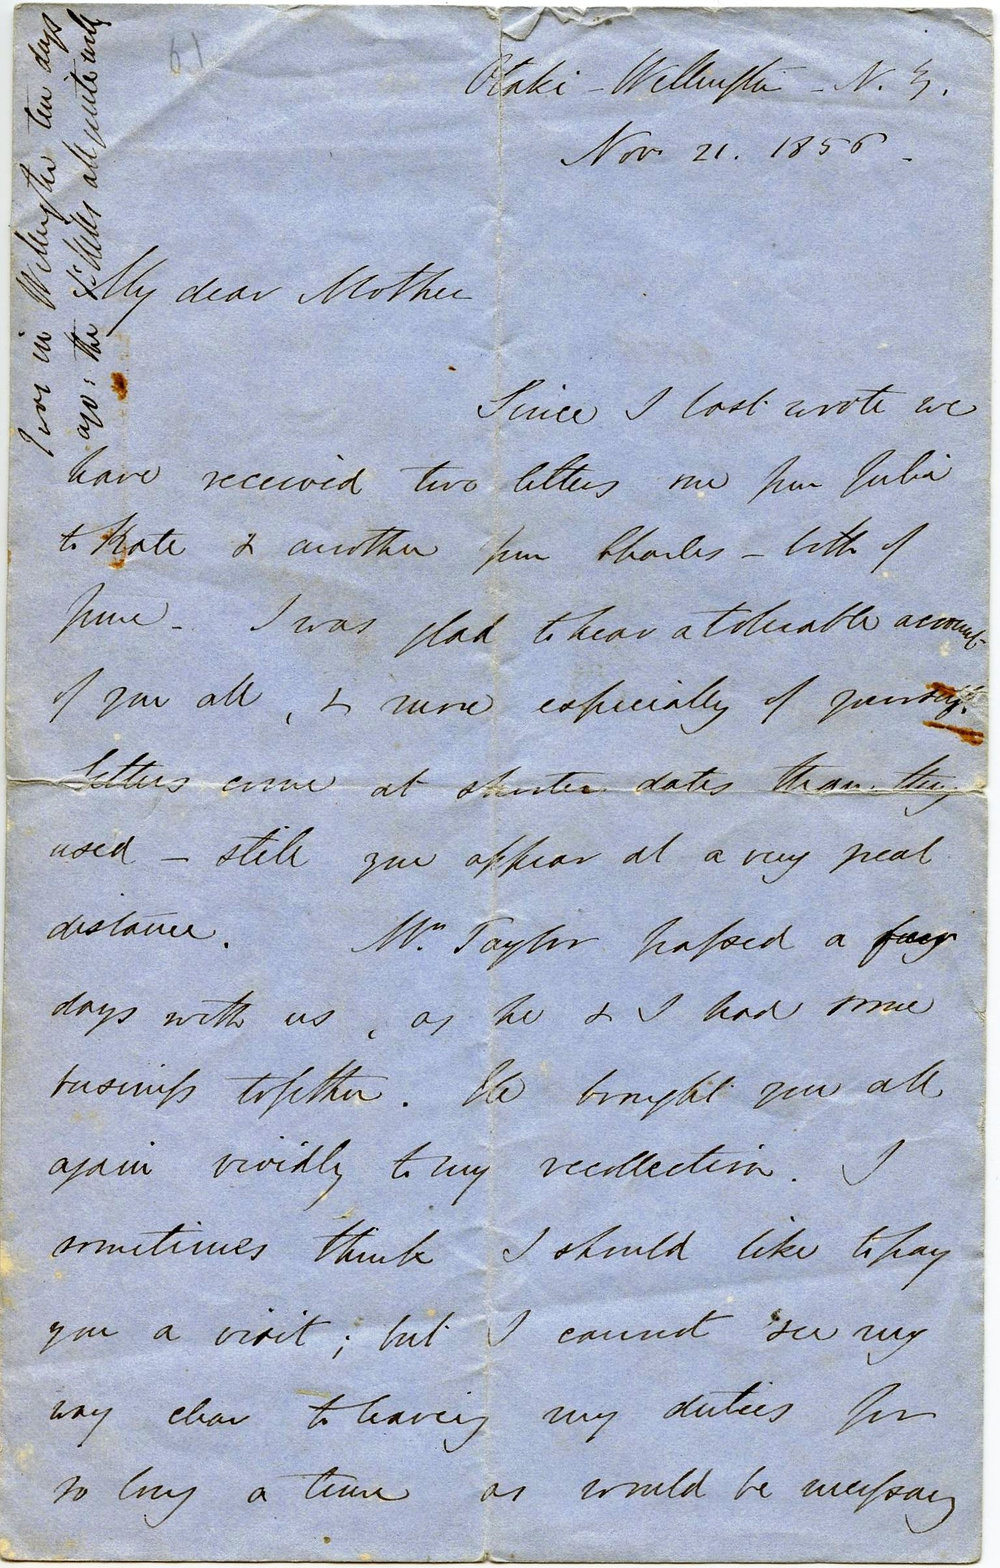 61
Otaki - Wellington - N. Z.
Nov 21. 1856 -
My dear Mother
Since I last wrote we
have received two letters one from Julia
to Kate & another from Charles - both of
June - I was glad to hear a tolerable account
of you all, & more especially of yourself.
Letters come at shorter dates than they
used - still you appear at a very great
distance. Mr. Taylor passed a few
days with us, as he & I had some
business together. He brought you all
again vividly to my recollection. I
sometimes think I should like to pay
you a visit; but I cannot see my
way clear to leaving my duties for
so long a time as would be necessary
I was in Wellington ten days
ago: the all quite well